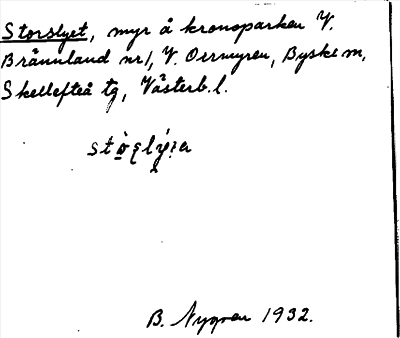 Storslyet, myr å kronoparken V.
Brännland nr 1, V. Orrmyren, Byske sn,
Skellefteå tg, Västerb. l.
B. Nygren 1932.